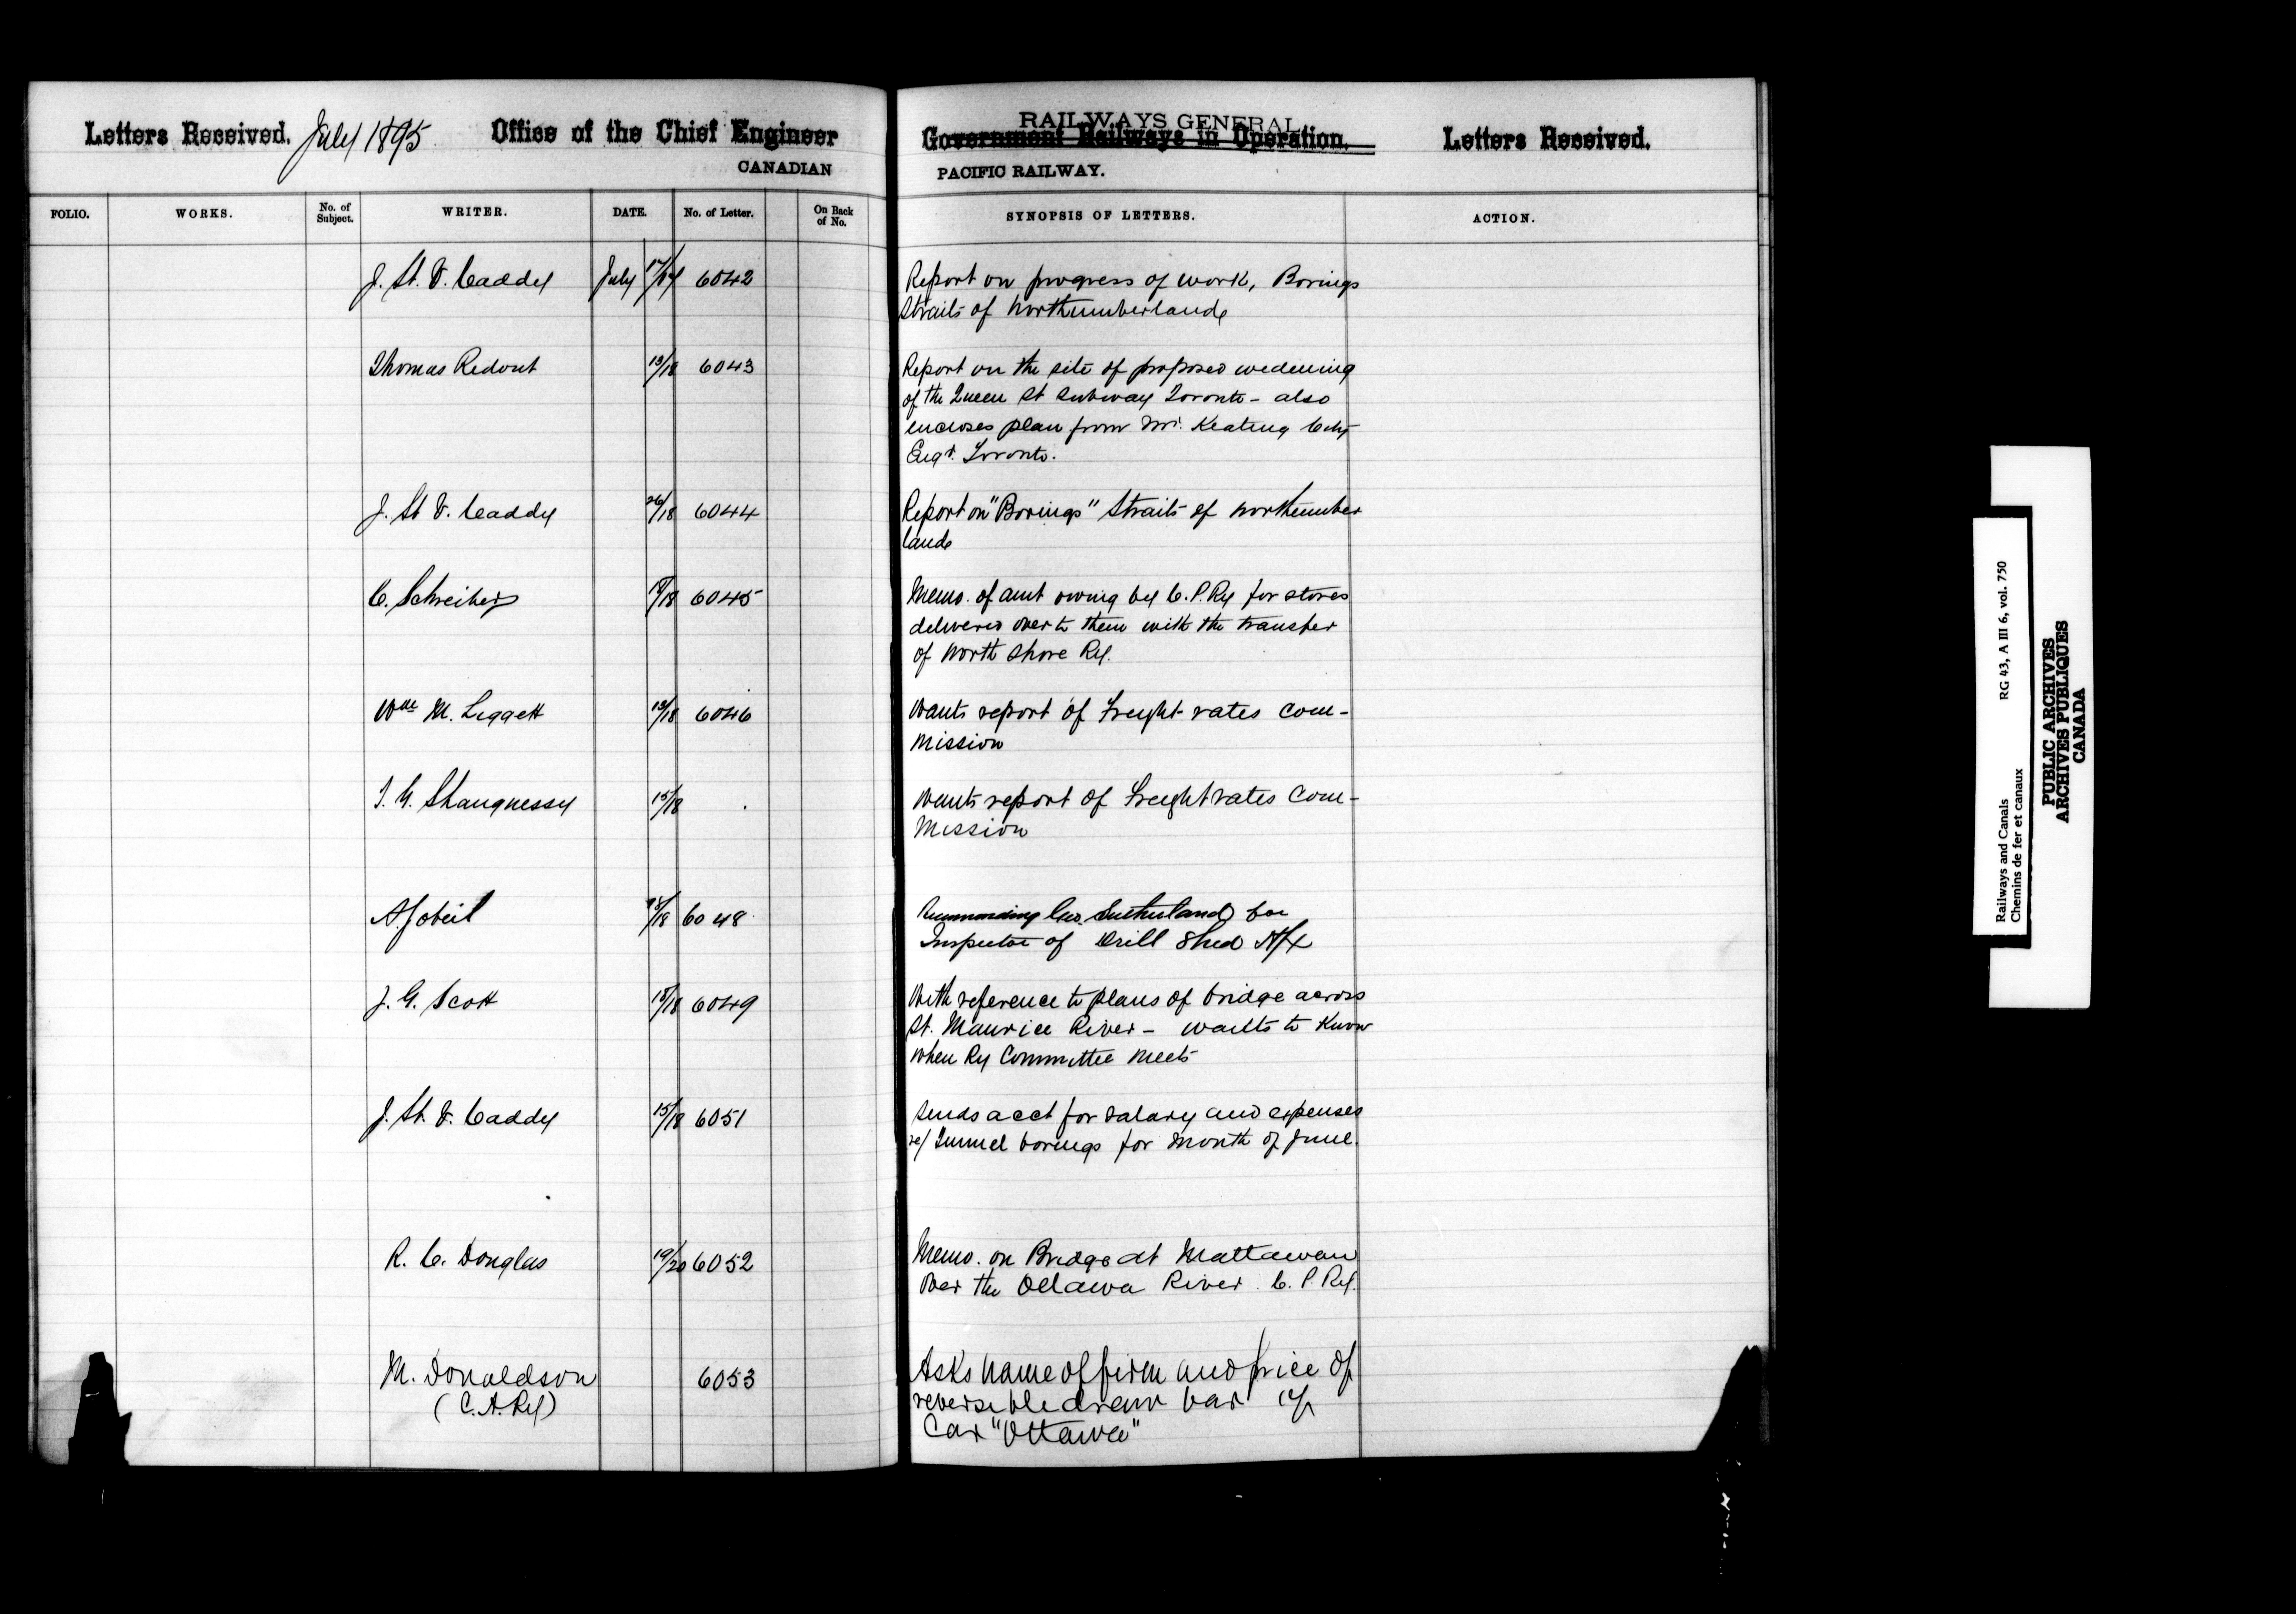 Letters Received. July 1895 Office of the Chief Engineer
CANADIAN
RAILWAYS GENERAL
Government Railways in Operation. Letters Received.
PACIFIC RAILWAY.
FOLIO. WORKS. No. of Subject. WRITER. DATE. No. of Letter. On Back of No. SYNOPSIS OF LETTERS. ACTION.
J. St. V. Caddy July 17/17 6042 Report on progress of work, Borings
Straits of Northumberland
Thomas Ridout 13/18 6043 Report on the site of proposed widening
of the Queen St Subway Toronto - also
encloses plan from Mr. Keating City
Engr. Toronto.
J. St V. Caddy 26/18 6044 Report on "Borings" Straits of Northumber
land
C. Schreiber /18 6045 Memo. of amt owing by C.P.Ry for stores
delivered over to them with the transfer
of North Shore Ry.
Wm M. Liggett 13/18 6046 Wants report of Freight rates Com-
mission
T. G. Shaugnessy 15/18 Wants report of Freight rates Com-
mission
A. Gobeil 18/18 6048 Recommending Geo. Sutherland for
Inspector of Drill Shed Hfx
J. G. Scott 15/18 6049 With reference to plans of bridge across
St. Maurice River - wants to know
when Ry Committee meets
J. St. V. Caddy 15/18 6051 Sends acct for salary and expenses
re/ Tunnel borings for month of June.
R. C. Douglas 19/20 6052 Memo. on Bridge at Mattawan
over the Ottawa River. C. P. Ry.
M. Donaldson 6053 Asks name of firm and price of
(C.A.Ry) reversible draw bar
Car "Ottawa"
Railways and Canals RG 43, A III 6, vol. 750
Chemins de fer et canaux
PUBLIC ARCHIVES
ARCHIVES PUBLIQUES
CANADA